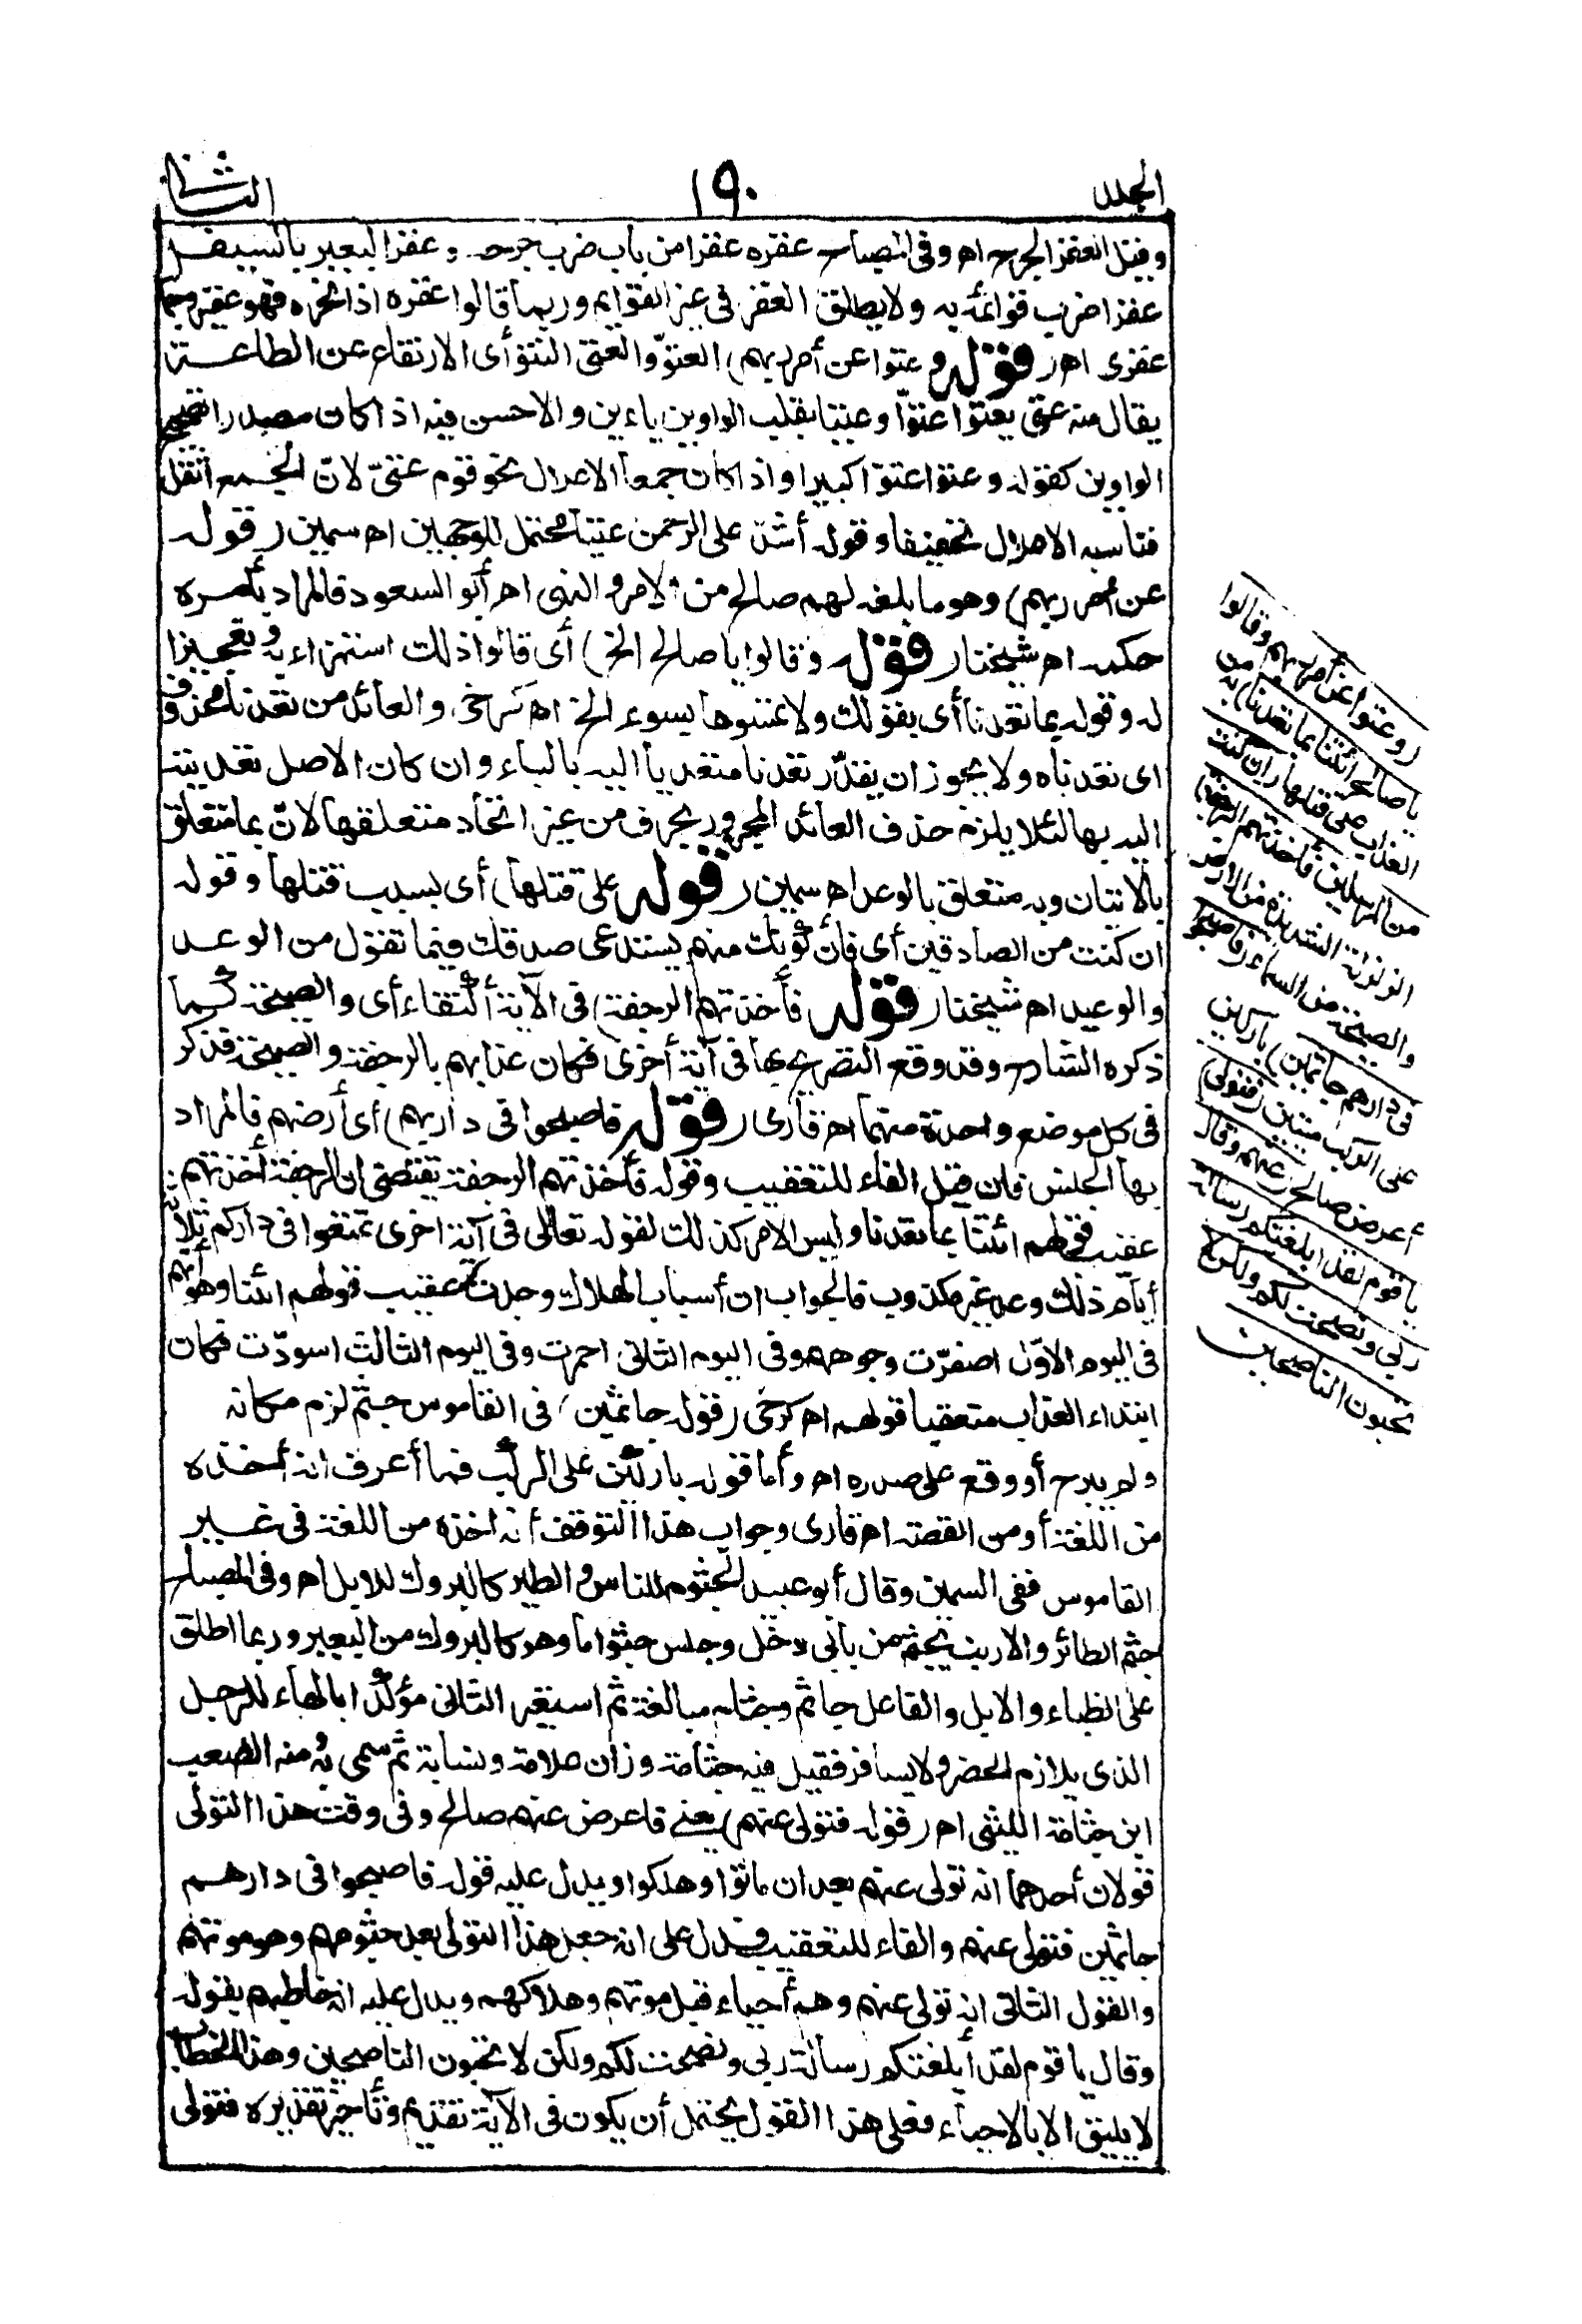 المجلد
١٩٠
الثانى
وقيل العقر الجرح اه وفى المصباح عقره عقرا من باب ضرب جرحه وعقر البعير بالسيف
عقرا ضرب قوائمه به ولا يطلق العقر فى غير القوائم وربما قالوا عقره اذا نحره فهو عقير وجمال
عقرى اه (قوله وعتوا عن أمر ربهم) العتوّ والعتىّ النبوّ أى الارتفاع عن الطاعة
يقال منه عتى يعتوا عتوّا وعتيا بقلب الواوين ياءين والاحسن فيه اذا كان مصدرا تصحيح
الواوين كقوله وعتوا عتوّا كبيرا واذا كان جمعا الاعلال نحو قوم عتىّ لانّ الجمع أثقل
فناسبه الاعلال تخفيفا وقوله أشدّ على الرحمن عتيا محتمل للوجهين اه سمين (قوله
عن أمر ربهم) وهو ما بلغه لهم صالح من الامر والنهى اه أبو السعود فالمراد بأمره
حكمه اه شيخنا (قوله وقالوا يا صالح الخ) أى قالوا ذلك استهزاء به وتعجيزا
له وقوله بما تعدنا أى بقولك ولا تمسوها بسوء الخ اه كرخى والعائد من تعدنا محذوف
اى تعدناه ولا يجوز ان يقدّر تعدنا متعديا اليه بالباء وان كان الاصل تعديته
اليه بها لئلا يلزم حذف العائد المجرور بحرف من غير اتحاد متعلقهما لانّ بما متعلق
بالاتيان وبه متعلق بالوعد اه سمين (قوله على قتلها) أى بسبب قتلها وقوله
ان كنت من الصادقين أى فانّ كونك منهم يستدعى صدقك فيما تقول من الوعد
والوعيد اه شيخنا (قوله فأخذتهم الرجفة) فى الآية أكتفاء أى والصيحة كما
ذكره الشارح وقد وقع التصريح بها فى آية أخرى فكان عذابهم بالرجفة والصيحة فذكر
فى كل موضع واحدة منهما اه قارى (قوله فاصبحوا فى دارهم) أى أرضهم فالمراد
بها الجنس فان قيل الفاء للتعقيب وقوله فأخذتهم الرجفة يقتضى ان الرجفة أخذتهم
عقب قولهم ائتنا بما تعدنا وليس الامر كذلك لقوله تعالى فى آية اخرى تمتعوا فى داركم ثلاثة
أيام ذلك وعد غير مكذوب فالجواب ان أسباب الهلاك وجدت عقيب قولهم ائتنا وهو أنهم
فى اليوم الاوّل اصفرّت وجوههم وفى اليوم الثانى احمرت وفى اليوم الثالث اسودّت فكان
ابتداء العذاب متعقبا قولهم اه كرخى (قوله جاثمين) فى القاموس جثم لزم مكانه
ولم يبرح أو وقع على صدره اه وأما قوله باركين على الركب فما أعرف انه أخذه
من اللغة أو من القصة اه قارى وجواب هذا التوقف أنه اخذه من اللغة فى غير
القاموس ففى السمين وقال أبو عبيد الجثوم للناس والطير كالبروك للابل اه وفى المصباح
جثم الطائر والارنب يجثم من بابى دخل وجلس جثوما وهو كالبروك من البعير وربما اطلق
على الظباء والابل والفاعل جاثم وجثام مبالغة ثم استعير الثانى مؤكدا بالهاء للرجل
الذى يلازم الحضر ولا يسافر فقيل فيه جثامة وزان علامة ونسابة ثم سمى به ومنه الصعب
ابن جثامة الليثى اه (قوله فتولى عنهم) يعنى فاعرض عنهم صالح وفى وقت هذا التولى
قولان أحدهما انه تولى عنهم بعد ان ماتوا وهلكوا ويدل عليه قوله فاصبحوا فى دارهم
جاثمين فتولى عنهم والفاء للتعقيب فدل على انه جعل هذا التولى بعد جثومهم وهو موتهم
والقول الثانى انه تولى عنهم وهم أحياء قبل موتهم وهلاكهم ويدل عليه انه خاطبهم بقوله
وقال يا قوم لقد أبلغتكم رسالة ربى ونصحت لكم ولكن لا تحبون الناصحين وهذا الخطاب
لا يليق الا بالاحياء فعلى هذا القول يحتمل أن يكون فى الآية تقديم وتأخير تقديره فتولى
(وعتوا عن أمر ربهم وقالوا
يا صالح ائتنا بما تعدنا) به من
العذاب على قتلها (ان كنت
من المرسلين فأخذتهم الرجفة)
الزلزلة الشديدة من الارض
والصيحة من السماء (فاصبحوا
فى دارهم جاثمين) باركين
على الركب ميتين (فتولى)
أعرض صالح (عنهم وقال
يا قوم لقد ابلغتكم رسالة
ربى ونصحت لكم ولكن لا
تحبون الناصحين